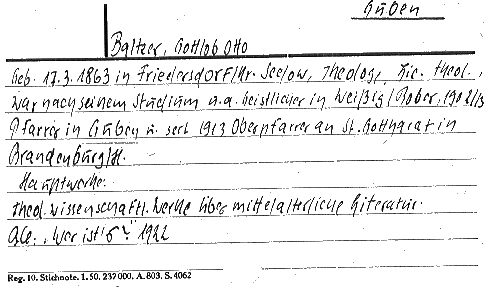 Guben
Baltzer, Gottlob Otto
Geb. 17.3.1863 in Friedersdorf/Kr. Seelow, Theologe, Lic. theol.,
war nach seinem Studium u.a. Geistlicher in Weißig/Bober, 1902/13
Pfarrer in Guben u. seit 1913 Oberpfarrer an St. Gotthardt in
Brandenburg/H.
Hauptwerke:
Theol. wissenschaftl. Werke über mittelalterliche Literatur.
"Wer ist's" 1922
Reg. 10. Stichnote. 1. 50. 237000. A. 803. S. 4062